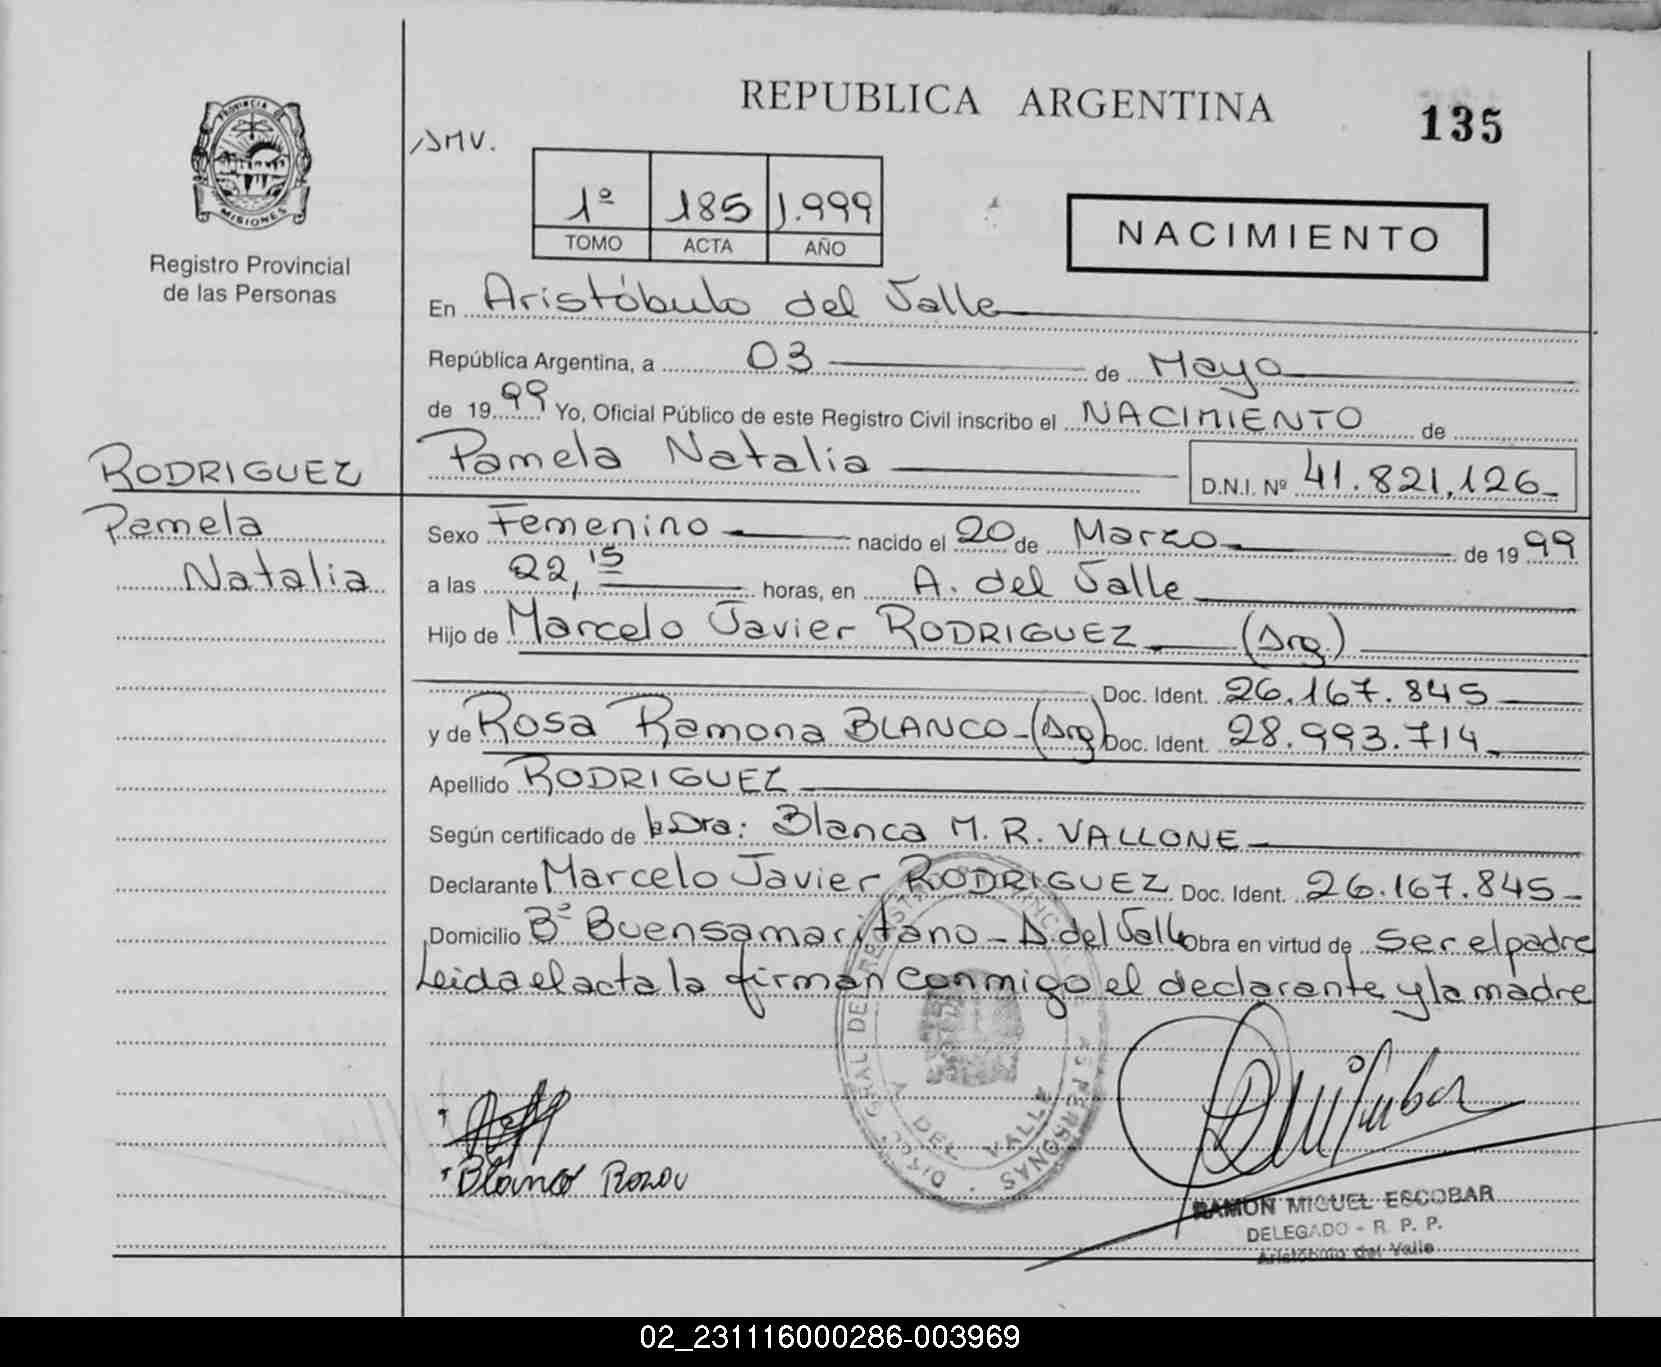 REPUBLICA ARGENTINA
135
PROVINCIA DE
MISIONES
Registro Provincial
de las Personas
1º 185 1.999
TOMO ACTA AÑO
NACIMIENTO
En Aristóbulo del Valle
República Argentina, a 03 de Mayo
de 1999 Yo, Oficial Público de este Registro Civil inscribo el NACIMIENTO de
Pamela Natalia D.N.I. Nº 41.821.126
RODRIGUEZ
Pamela
Natalia
Sexo Femenino nacido el 20 de Marzo de 1999
a las 22,15 horas, en A. del Valle
Hijo de Marcelo Javier RODRIGUEZ (Arg.)
Doc. Ident. 26.167.845
y de Rosa Ramona BLANCO - (Arg) Doc. Ident. 28.993.714
Apellido RODRIGUEZ
Según certificado de la Dra: Blanca M. R. VALLONE
Declarante Marcelo Javier RODRIGUEZ Doc. Ident. 26.167.845
Domicilio Bº Buensamaritano - A. del Valle Obra en virtud de ser el padre
Leida el acta la firman conmigo el declarante y la madre
A DEL VALLE
Blanco
RAMON MIGUEL ESCOBAR
DELEGADO - R. P. P.
Aristóbulo del Valle
02_231116000286-003969